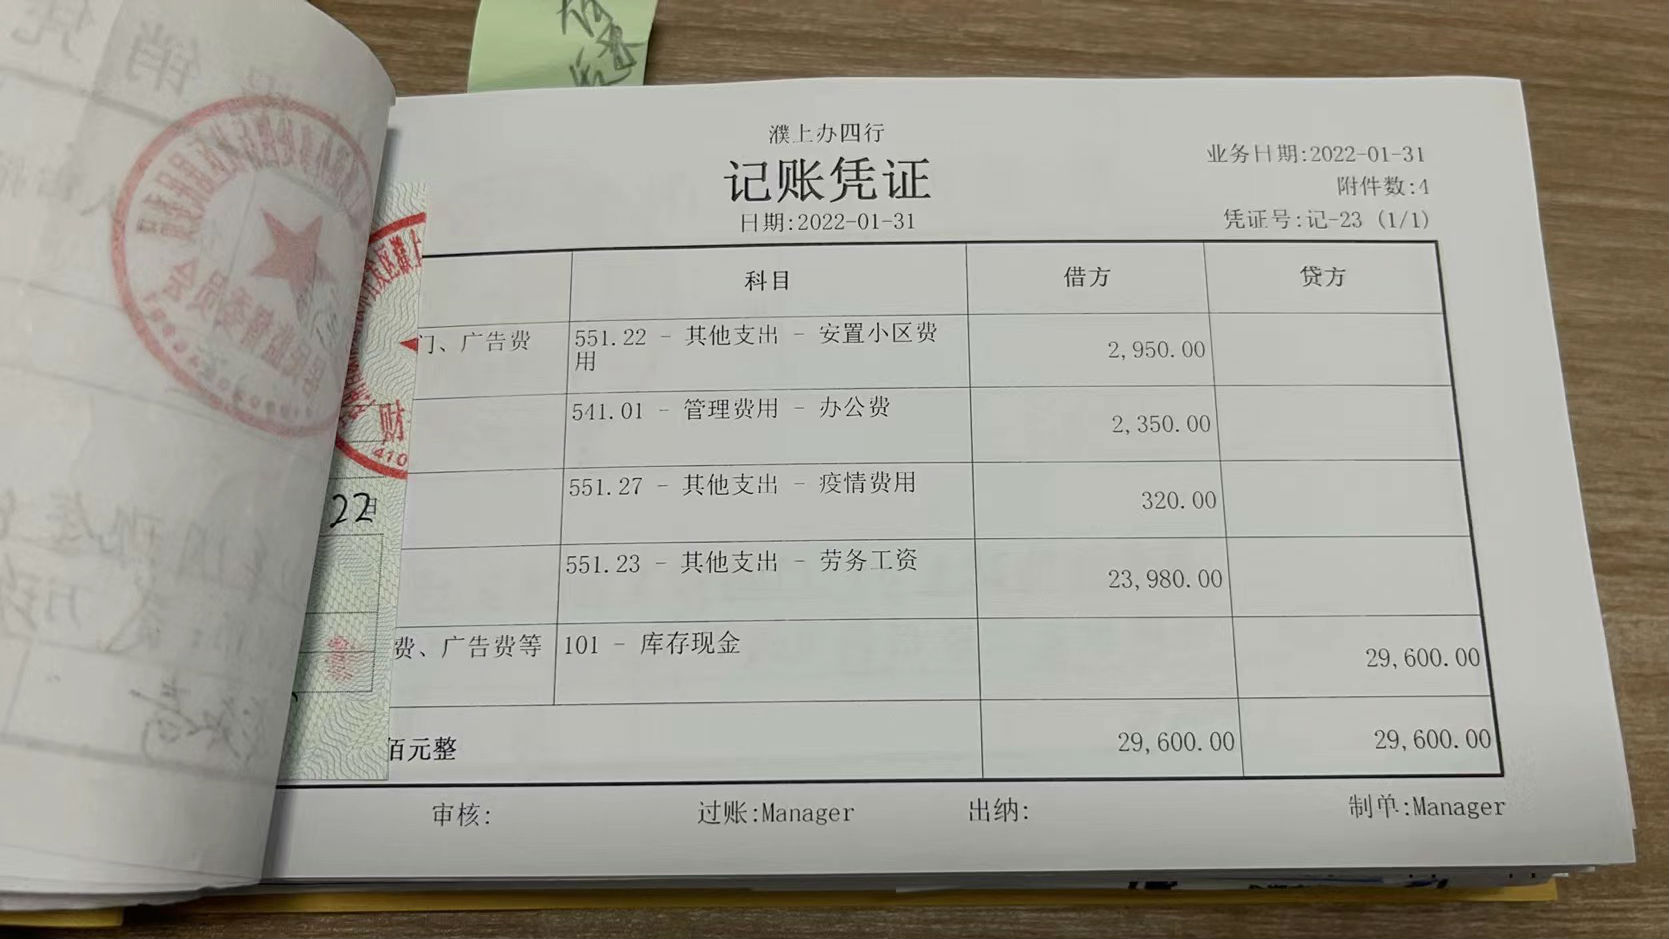 濮上办四行
记账凭证
日期:2022-01-31
业务日期:2022-01-31
附件数:4
凭证号:记-23 (1/1)
科目 借方 贷方
门、广告费 551.22 - 其他支出 - 安置小区费用 2,950.00
541.01 - 管理费用 - 办公费 2,350.00
551.27 - 其他支出 - 疫情费用 320.00
551.23 - 其他支出 - 劳务工资 23,980.00
费、广告费等 101 - 库存现金 29,600.00
佰元整 29,600.00 29,600.00
审核: 过账:Manager 出纳: 制单:Manager
财
410
22日